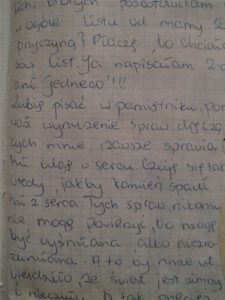 ich, których pozostawiłam
w ogóle listu od mamy
przyczyną? Płaczę, bo chciała
list. Ja napisałam 2-a
ani jednego"!!!
Lubię pisać w pamiętniku, Pon
waż wyrażenie spraw dręczą
cych mnie zawsze sprawia
mi ulgę w sercu. Czuję się tak
wtedy, jakby kamień spadł
mi z serca. Tych spraw nikomu
nie mogę powierzyć, bo mogę
być wyśmiana albo niezro
zumiana. A to by mnie ut
wierdziło, że świat jest zimny
i nieczuły. A tak